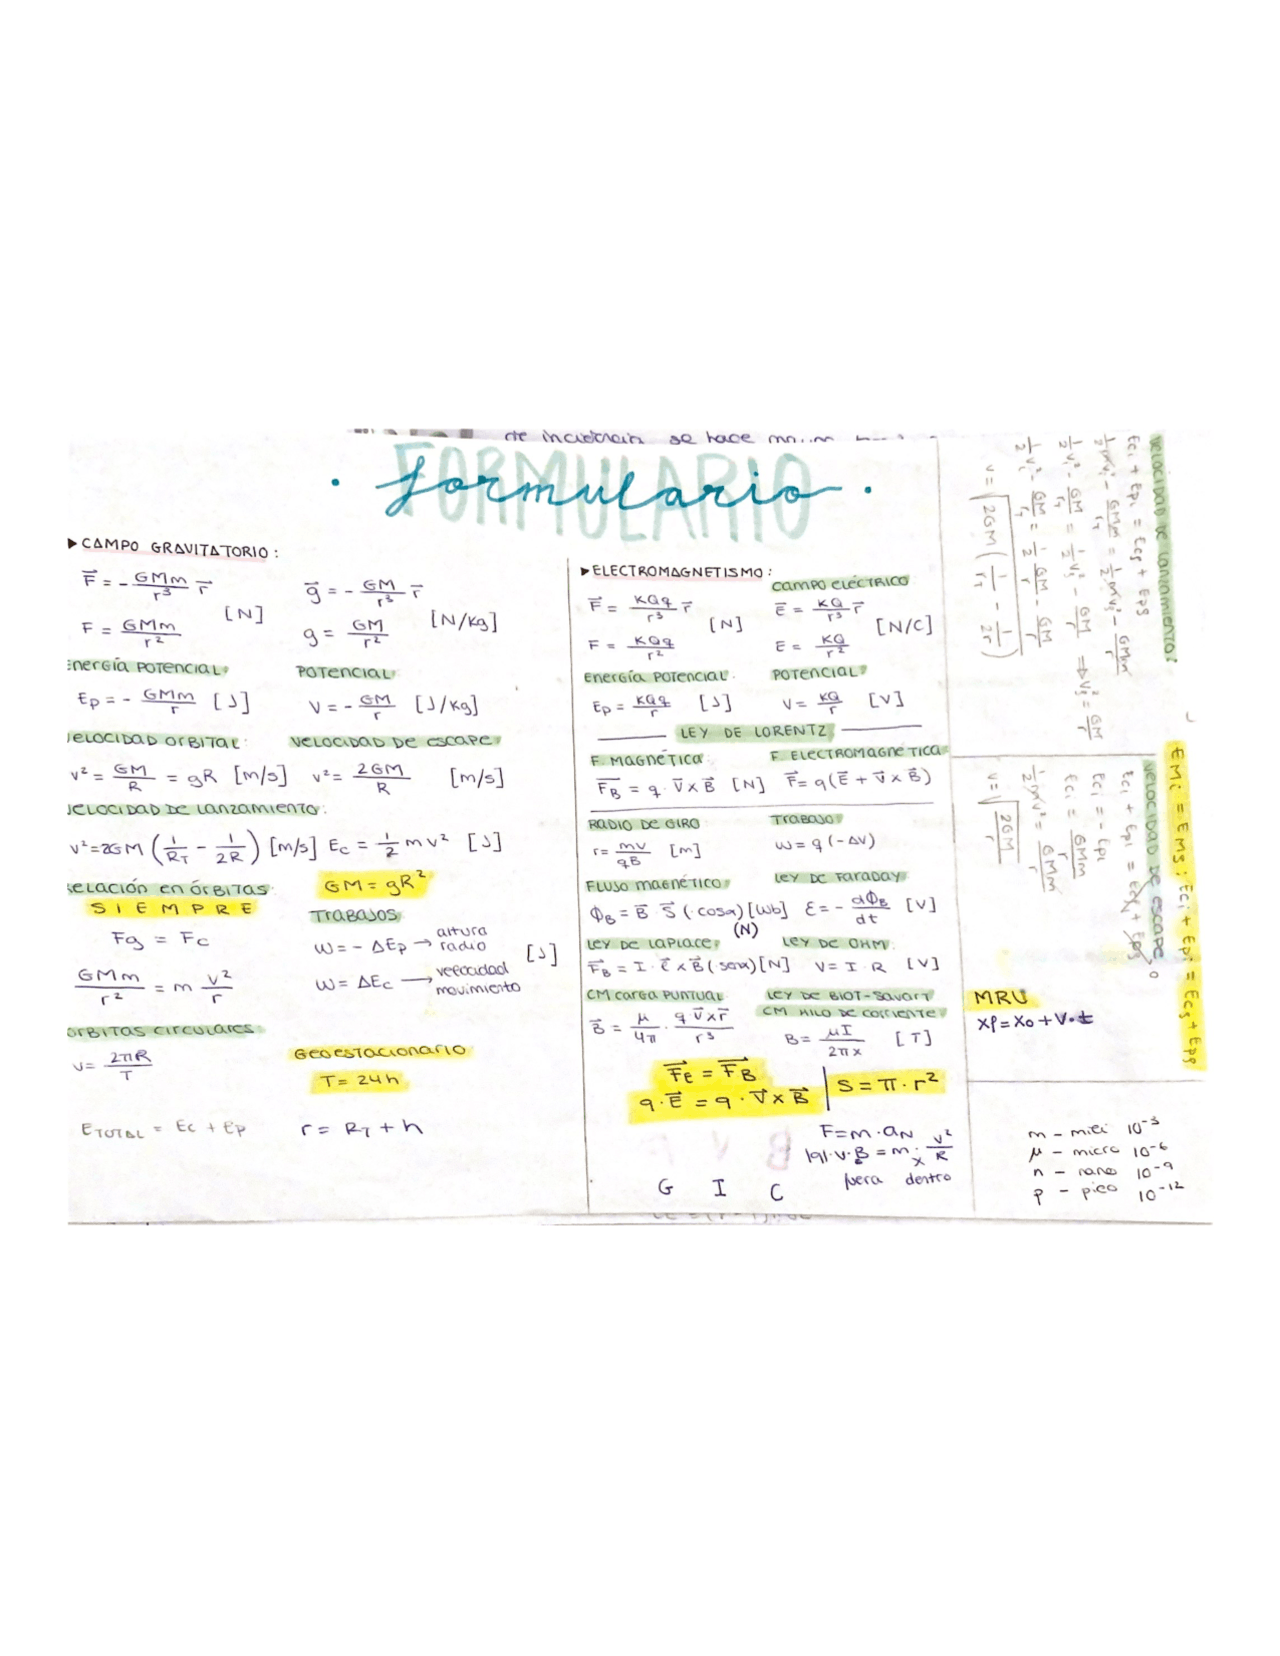 de inducción se hace
FORMULARIO
· formulario ·
▶ CAMPO GRAVITATORIO:
F⃗ = - GMm/r³ r⃗
F = GMm/r² [N]
g⃗ = - GM/r³ r⃗
g = GM/r² [N/Kg]
Energía POTENCIAL:
Ep = - GMm/r [J]
POTENCIAL:
V = - GM/r [J/Kg]
VELOCIDAD ORBITAL:
v² = GM/R = gR [m/s]
VELOCIDAD DE ESCAPE:
v² = 2GM/R [m/s]
VELOCIDAD DE LANZAMIENTO:
v² = 2GM (1/R_T - 1/2R) [m/s] Ec = 1/2 mv² [J]
RELACIÓN EN ÓRBITAS:
SIEMPRE
Fg = Fc
GMm/r² = m v²/r
GM = gR²
TRABAJOS
W = - ΔEp → altura radio [J]
W = ΔEc → velocidad movimiento
ORBITAS CIRCULARES:
v = 2πR/T
GEOESTACIONARIO
T = 24h
E_TOTAL = Ec + Ep
r = R_T + h
▶ ELECTROMAGNETISMO:
F⃗ = KQq/r³ r⃗
F = KQq/r² [N]
CAMPO ELÉCTRICO
E⃗ = KQ/r³ r⃗
E = KQ/r² [N/C]
Energía POTENCIAL:
Ep = KQq/r [J]
POTENCIAL:
V = KQ/r [V]
LEY DE LORENTZ
F. MAGNÉTICA:
F_B⃗ = q · v⃗ x B⃗ [N]
F. ELECTROMAGNÉTICA:
F⃗ = q(E⃗ + v⃗ x B⃗)
RADIO DE GIRO
r = mv/qB [m]
TRABAJO:
W = q (-ΔV)
FLUJO MAGNÉTICO:
Φ_B = B⃗ · S⃗ (· cosα) [Wb]
(N)
LEY DE FARADAY
ε = - dΦ_B/dt [V]
LEY DE LAPLACE:
F_B⃗ = I · ℓ⃗ x B⃗ (senα) [N]
LEY DE OHM:
V = I · R [V]
CM CARGA PUNTUAL
B⃗ = μ/4π · q v⃗ x r⃗/r³
LEY DE BIOT-SAVART
CM HILO DE CORRIENTE
B = μI/2πx [T]
F_E⃗ = F_B⃗
q · E⃗ = q · v⃗ x B⃗
S = π · r²
F = m · a_N
|q| · v · B = m · v²/R
· x
fuera dentro
B V F
G I C
VELOCIDAD DE LANZAMIENTO:
Eci + Epi = Ecf + Epf
1/2 mvi² - GMm/r_T = 1/2 mvf² - GMm/r
1/2 vi² - GM/r_T = 1/2 vf² - GM/r ⇒ vf² = GM/r
1/2 vi² - GM/r_T = 1/2 GM/r - GM/r
v = √(2GM (1/r_T - 1/2r))
EMi = EMf ; Eci + Epi = Ecf + Epf
VELOCIDAD DE ESCAPE
Eci + Epi = Ecf + Epf 0
Eci = - Epi
Eci = GMm/r
1/2 mv² = GMm/r
v = √(2GM/r)
MRU
Xf = X0 + V · t
m - mili 10⁻³
μ - micro 10⁻⁶
n - nano 10⁻⁹
p - pico 10⁻¹²